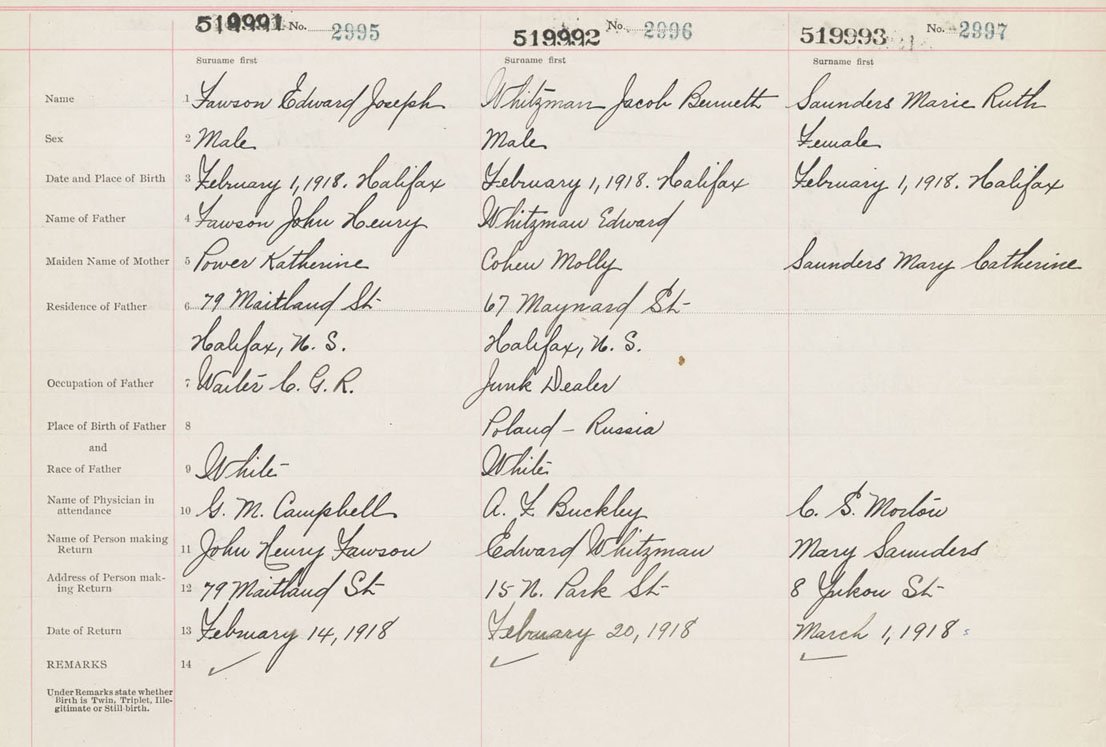 519991 No. 2995 519992 No. 2996 519993 No. 2997
Surname first Surname first Surname first
Name 1 Fawson Edward Joseph Whitzman Jacob Bennett Saunders Marie Ruth
Sex 2 Male Male Female
Date and Place of Birth 3 February 1, 1918. Halifax February 1, 1918. Halifax February 1, 1918. Halifax
Name of Father 4 Fawson John Henry Whitzman Edward
Maiden Name of Mother 5 Power Katherine Cohen Molly Saunders Mary Catherine
Residence of Father 6 79 Maitland St 67 Maynard St
Halifax, N. S. Halifax, N. S.
Occupation of Father 7 Waiter C. G. R. Junk Dealer
Place of Birth of Father 8 Poland – Russia
and
Race of Father 9 White White
Name of Physician in
attendance 10 G. M. Campbell A. F. Buckley C. S. Morton
Name of Person making
Return 11 John Henry Fawson Edward Whitzman Mary Saunders
Address of Person mak-
ing Return 12 79 Maitland St 15 N. Park St 8 Yukon St
Date of Return 13 February 14, 1918 February 20, 1918 March 1, 1918
REMARKS 14
Under Remarks state whether
Birth is Twin, Triplet, Ille-
gitimate or Still-birth.